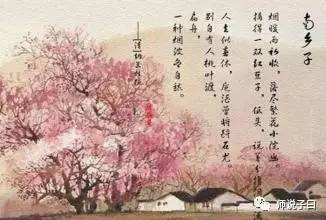 南乡子
烟暖雨初收，落尽繁花小院幽
摘得一双红豆子，低头，说著分
人去似春休，卮酒曾将酹石尤。
别自有人桃叶渡，
扁舟，
一种烟波各自愁。
——[清]纳兰性德
师说子曰